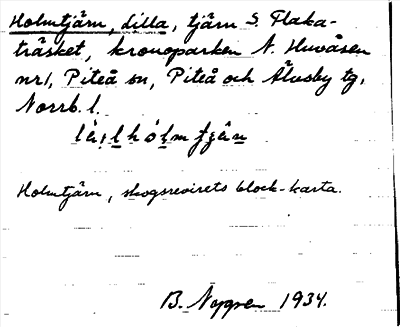 Holmtjärn, lilla, tjärn S. Flaka-
träsket, kronoparken N. Huvåsen
nr 1, Piteå sn, Piteå och Älvsby tg,
Norrb. l.
Holmtjärn, skogsrevirets block-karta.
B. Noppen 1934.